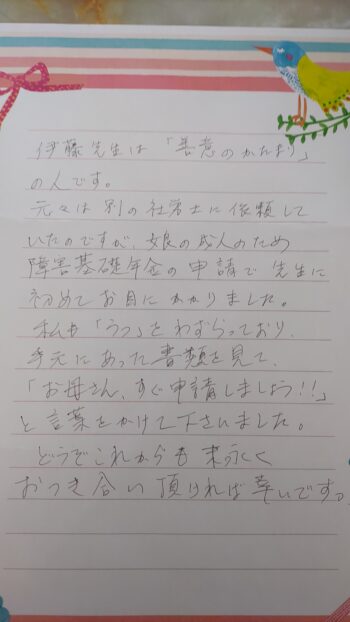 伊藤先生は「善意のかたまり」
の人です。
元々は別の社労士に依頼して
いたのですが、娘の成人のため
障害基礎年金の申請で先生に
初めてお目にかかりました。
私も「うつ」をわずらっており、
手元にあった書類を見て、
「お母さん、すぐ申請しましょう!!」
と言葉をかけて下さいました。
どうぞこれからも末永く
おつき合い頂ければ幸いです。